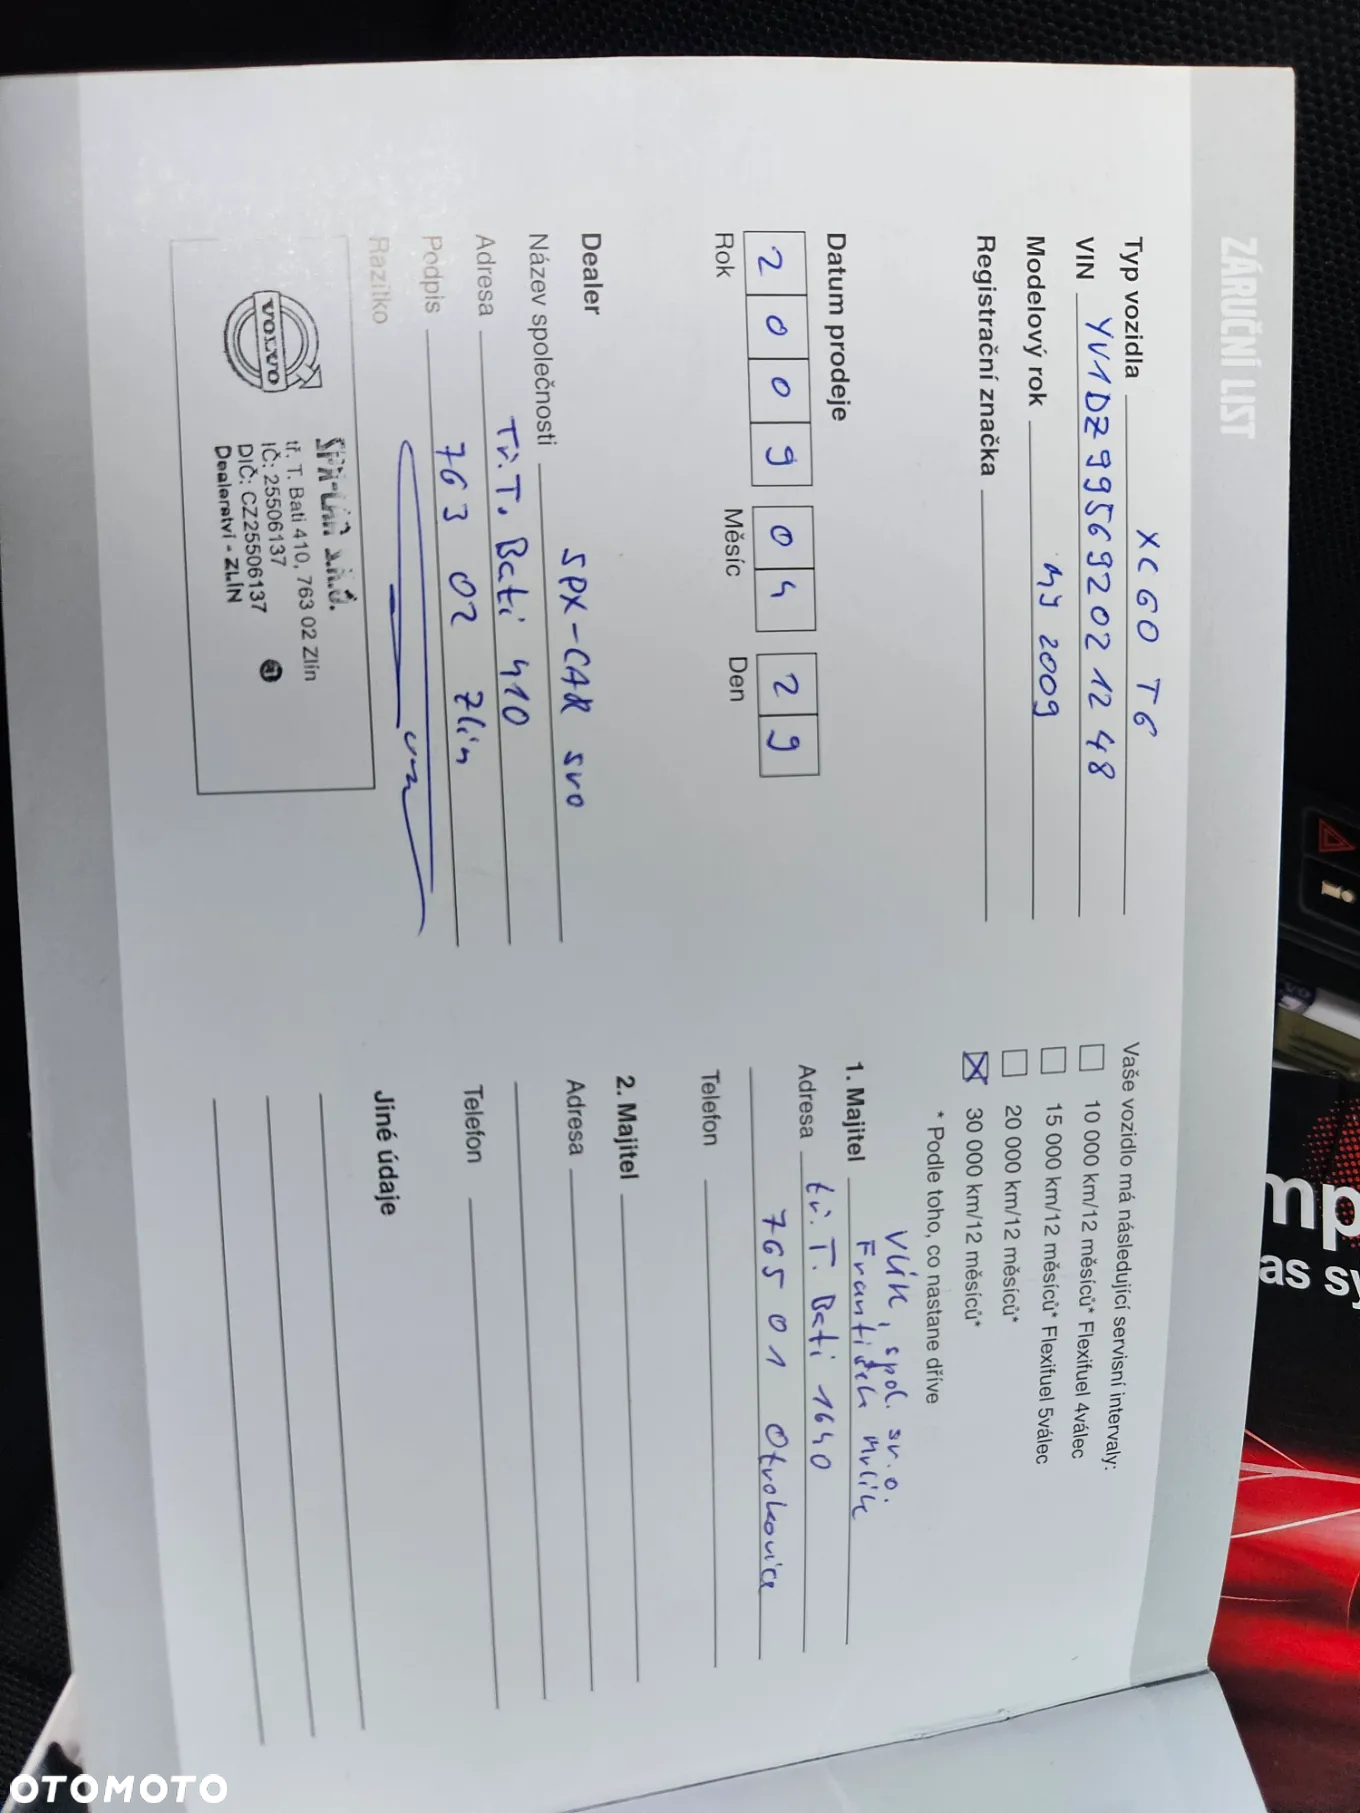 ZÁRUČNÍ LIST
Typ vozidla XC60 T6
VIN YV1DZ995692021248
Modelový rok MY 2009
Registrační značka
Datum prodeje
2009 04 29
Rok Měsíc Den
Dealer
Název společnosti SPX-CAR sro
Adresa Tř. T. Bati 410
763 02 Zlín
Podpis
Razítko
VOLVO
SPX-CAR s.r.o.
tř. T. Bati 410, 763 02 Zlín
IČ: 25506137
DIČ: CZ25506137
Dealerství - ZLÍN
Vaše vozidlo má následující servisní intervaly:
10 000 km/12 měsíců* Flexifuel 4válec
15 000 km/12 měsíců* Flexifuel 5válec
20 000 km/12 měsíců*
30 000 km/12 měsíců*
* Podle toho, co nastane dříve
spol. sr.o.
1. Majitel František
Adresa tř. T. Bati 1640
765 01 Otrokovice
Telefon
2. Majitel
Adresa
Telefon
Jiné údaje
mp
as sy
OTOMOTO